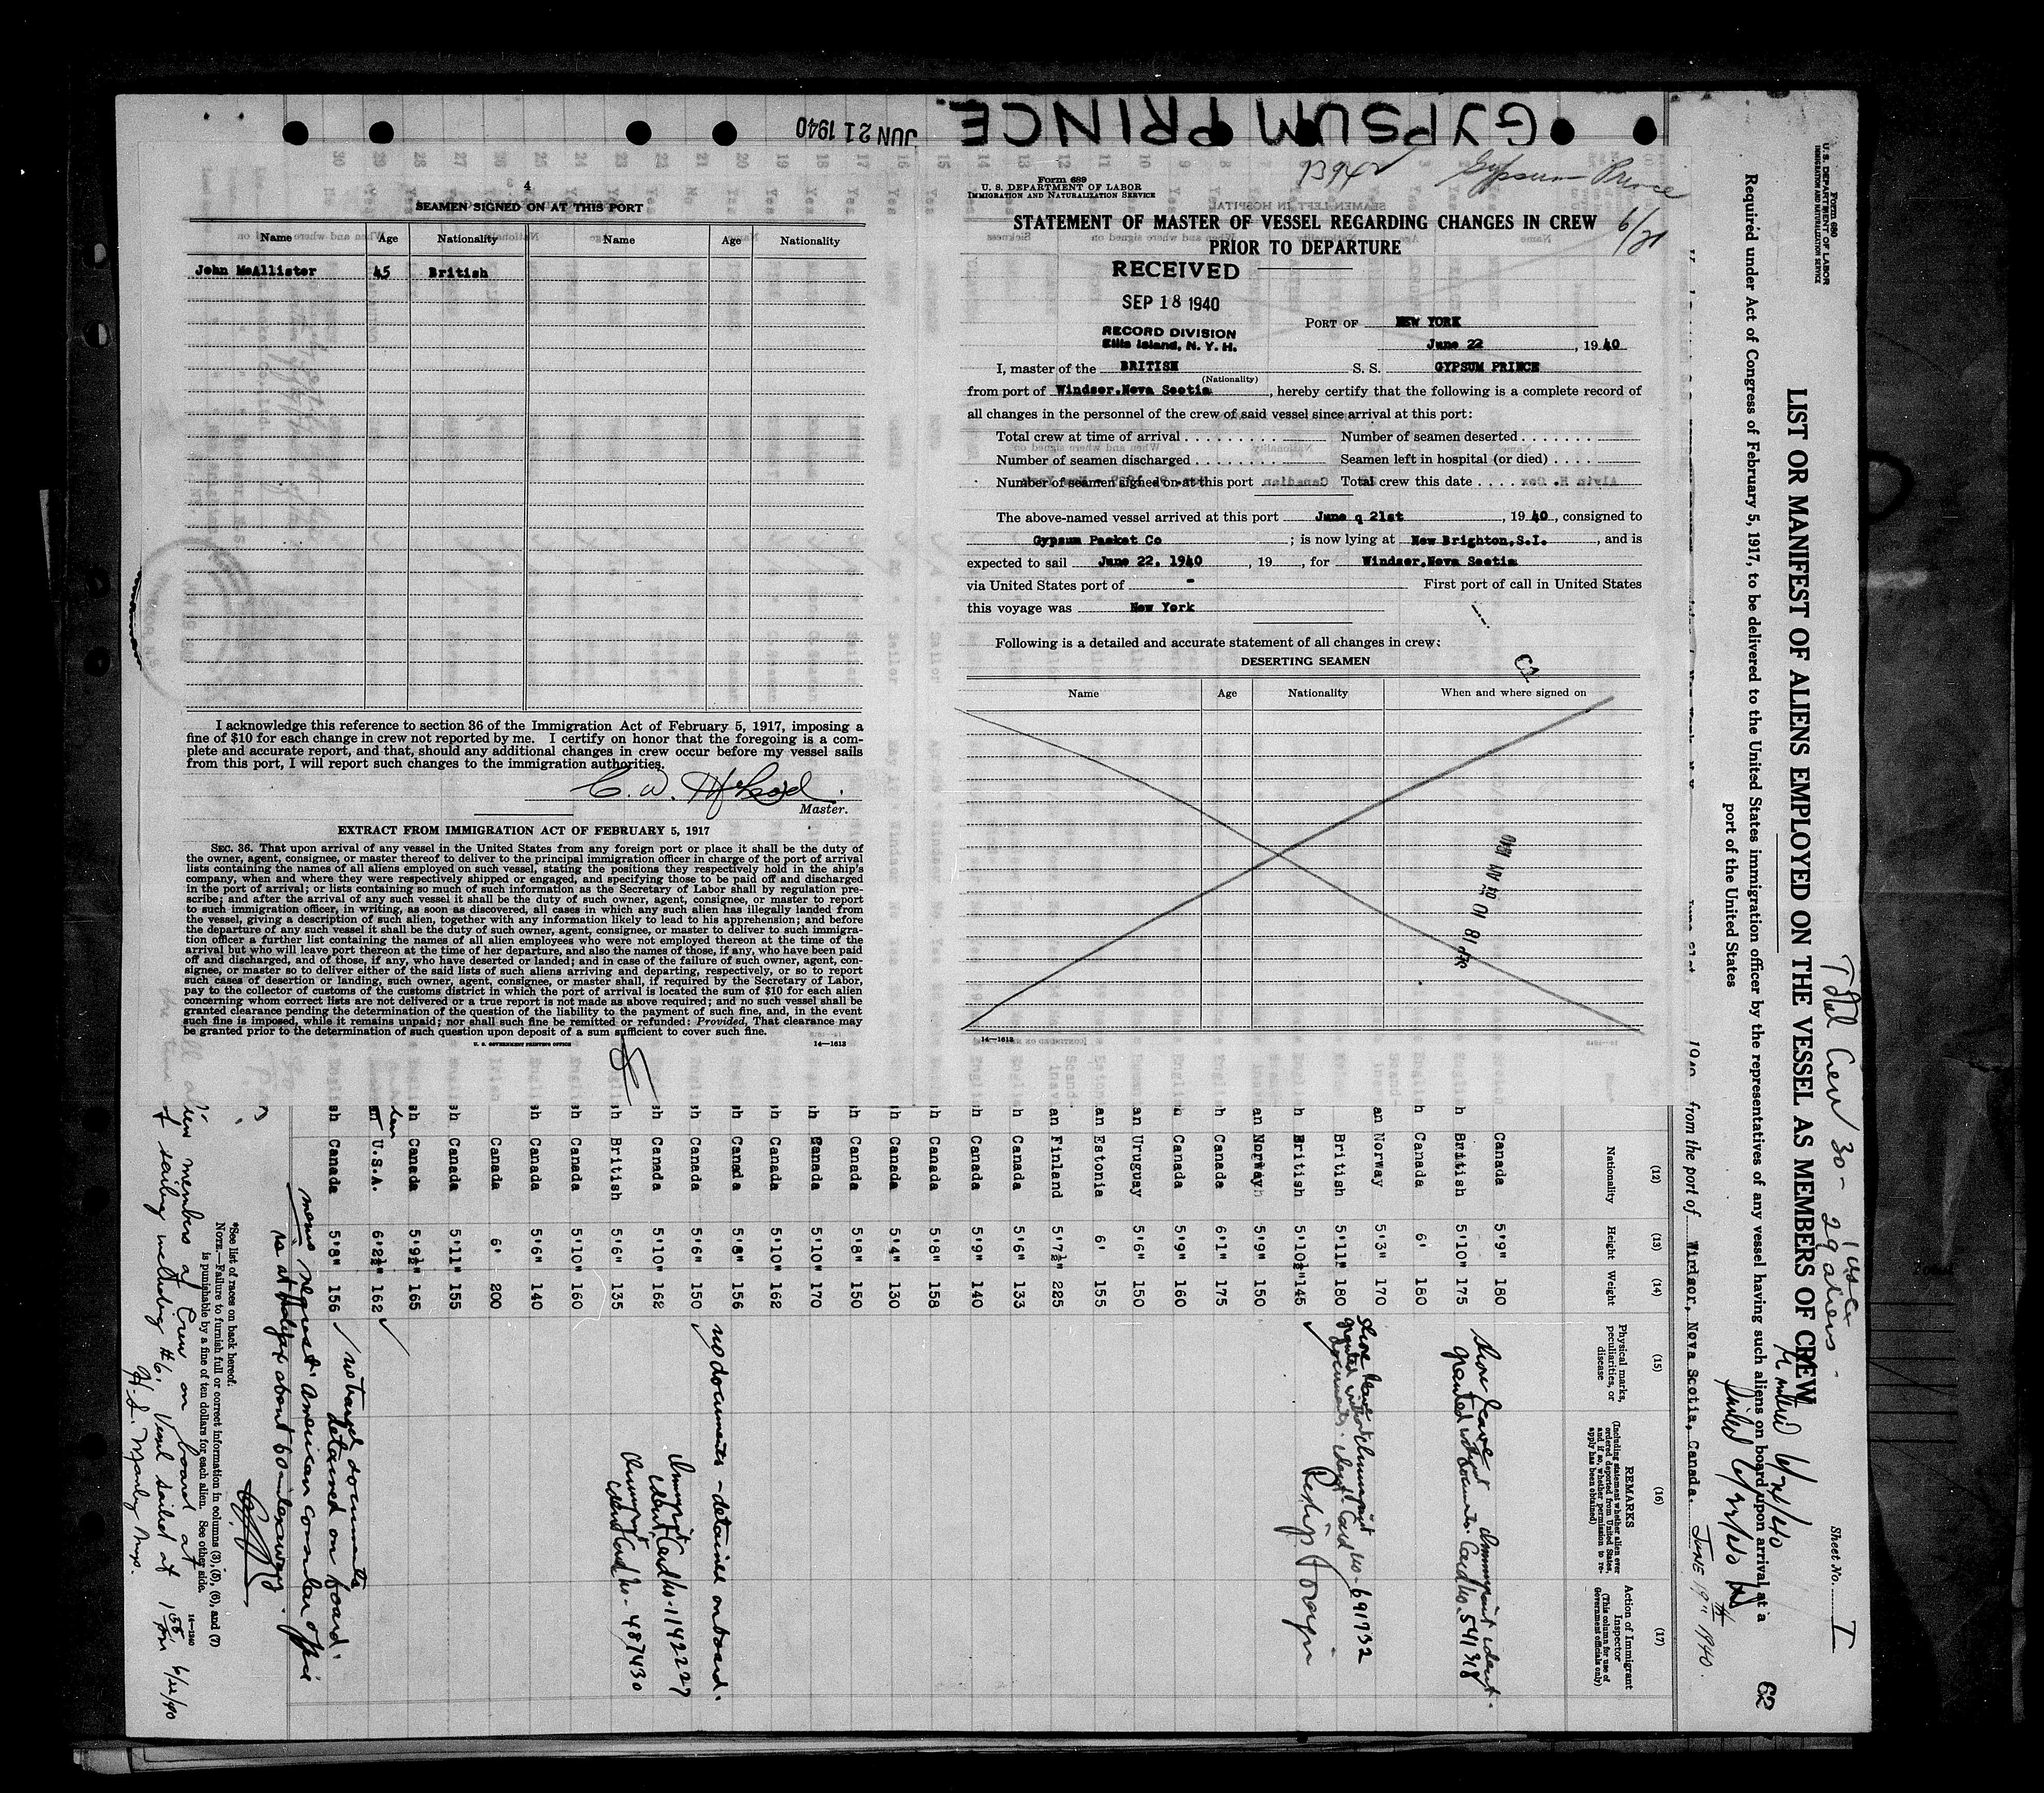 GYPSUM PRINCE.
JUN 21 1940
4
SEAMEN SIGNED ON AT THIS PORT
Name Age Nationality Name Age Nationality
John McAllister 45 British
I acknowledge this reference to section 36 of the Immigration Act of February 5, 1917, imposing a
fine of $10 for each change in crew not reported by me. I certify on honor that the foregoing is a com-
plete and accurate report, and that, should any additional changes in crew occur before my vessel sails
from this port, I will report such changes to the immigration authorities.
C. W. McLeod
Master.
EXTRACT FROM IMMIGRATION ACT OF FEBRUARY 5, 1917
SEC. 36. That upon arrival of any vessel in the United States from any foreign port or place it shall be the duty of
the owner, agent, consignee, or master thereof to deliver to the principal immigration officer in charge of the port of arrival
lists containing the names of all aliens employed on such vessel, stating the positions they respectively hold in the ship's
company, when and where they were respectively shipped or engaged, and specifying those to be paid off and discharged
in the port of arrival; or lists containing so much of such information as the Secretary of Labor shall by regulation pre-
scribe; and after the arrival of any such vessel it shall be the duty of such owner, agent, consignee, or master to report
to such immigration officer, in writing, as soon as discovered, all cases in which any such alien has illegally landed from
the vessel, giving a description of such alien, together with any information likely to lead to his apprehension; and before
the departure of any such vessel it shall be the duty of such owner, agent, consignee, or master to deliver to such immigra-
tion officer a further list containing the names of all alien employees who were not employed thereon at the time of the
arrival but who will leave port thereon at the time of her departure, and also the names of those, if any, who have been paid
off and discharged, and of those, if any, who have deserted or landed; and in case of the failure of such owner, agent, con-
signee, or master so to deliver either of the said lists of such aliens arriving and departing, respectively, or so to report
such cases of desertion or landing, such owner, agent, consignee, or master shall, if required by the Secretary of Labor,
pay to the collector of customs of the customs district in which the port of arrival is located the sum of $10 for each alien
concerning whom correct lists are not delivered or a true report is not made as above required; and no such vessel shall be
granted clearance pending the determination of the question of the liability to the payment of such fine, and, in the event
such fine is imposed, while it remains unpaid; nor shall such fine be remitted or refunded: Provided, That clearance may
be granted prior to the determination of such question upon deposit of a sum sufficient to cover such fine.
U. S. GOVERNMENT PRINTING OFFICE 14—1613
Form 689
U. S. DEPARTMENT OF LABOR
IMMIGRATION AND NATURALIZATION SERVICE
Gypsum Prince
6/21
STATEMENT OF MASTER OF VESSEL REGARDING CHANGES IN CREW
PRIOR TO DEPARTURE
RECEIVED
SEP 18 1940
RECORD DIVISION
Ellis Island, N. Y. H.
PORT OF NEW YORK
June 22, 1940
I, master of the BRITISH S. S. GYPSUM PRINCE
(Nationality)
from port of Windsor, Nova Scotia, hereby certify that the following is a complete record of
all changes in the personnel of the crew of said vessel since arrival at this port:
Total crew at time of arrival . . . . . . . . . . Number of seamen deserted . . . . . . .
Number of seamen discharged . . . . . . . . Seamen left in hospital (or died) . . . .
Number of seamen signed on at this port Total crew this date . . . .
The above-named vessel arrived at this port June q 21st, 1940, consigned to
Gypsum Packet Co ; is now lying at New Brighton, S.I. , and is
expected to sail June 22, 1940, 19 , for Windsor, Nova Scotia
via United States port of - First port of call in United States
this voyage was New York
Following is a detailed and accurate statement of all changes in crew:
DESERTING SEAMEN
Name Age Nationality When and where signed on
14—1613
Form 680
U. S. DEPARTMENT OF LABOR
IMMIGRATION AND NATURALIZATION SERVICE
Sheet No. I
62
LIST OR MANIFEST OF ALIENS EMPLOYED ON THE VESSEL AS MEMBERS OF CREW
Total Crew 30 - 29 aliens - 1 USC
Required under Act of Congress of February 5, 1917, to be delivered to the United States immigration officer by the representatives of any vessel having such aliens on board upon arrival at a
port of the United States
1940 from the port of Windsor, Nova Scotia, Canada. JUNE 19th 1940.
(12) Nationality
(13) Height
(14) Weight
(15) Physical marks, peculiarities, or disease
(16) REMARKS (Including statement whether alien ever ordered deported from United States, and if so, whether permission to reapply has been obtained)
(17) Action of Immigrant Inspector (This column for use of Government officials only)
Canada 5'9" 180
British 5'10" 175 Shore leave granted without documents. Immigrant ident. Card No. 541318
Canada 6' 180
Norway 5'3" 170
British 5'11" 180
British 5'10½" 145 Reship Foreign
Norway 5'9" 150
Canada 6'1" 175
Canada 5'9" 160
Uruguay 5'6" 150
Estonia 6' 155
Finland 5'7½" 225
Canada 5'6" 133
Canada 5'9" 140
Canada 5'8" 158
Canada 5'4" 130
Canada 5'8" 150
Canada 5'10" 170
Canada 5'10" 162
Canada 5'8" 156
Canada 5'6" 150 no documents - detained on board.
Canada 5'10" 162 Immigrant ident Card No. 1142227
British 5'6" 135 Immigrant ident Card No - 487430
Canada 5'10" 160
Canada 5'6" 140
Canada 6' 200
Canada 5'11" 155
Canada 5'9½" 165
U.S.A. 6'2½" 162
Canada 5'8" 156 no travel documents detained on board.
memo nearest American consular office
is at Halifax about 60 miles away.
*See list of races on back hereof.
NOTE.—Failure to furnish full or correct information in columns (3), (5), (6), and (7)
is punishable by a fine of ten dollars for each alien. See other side.
14—1240
all alien members of Crew on board at
the time of sailing including #6. Vessel sailed at 1 55 pm 6/22/40